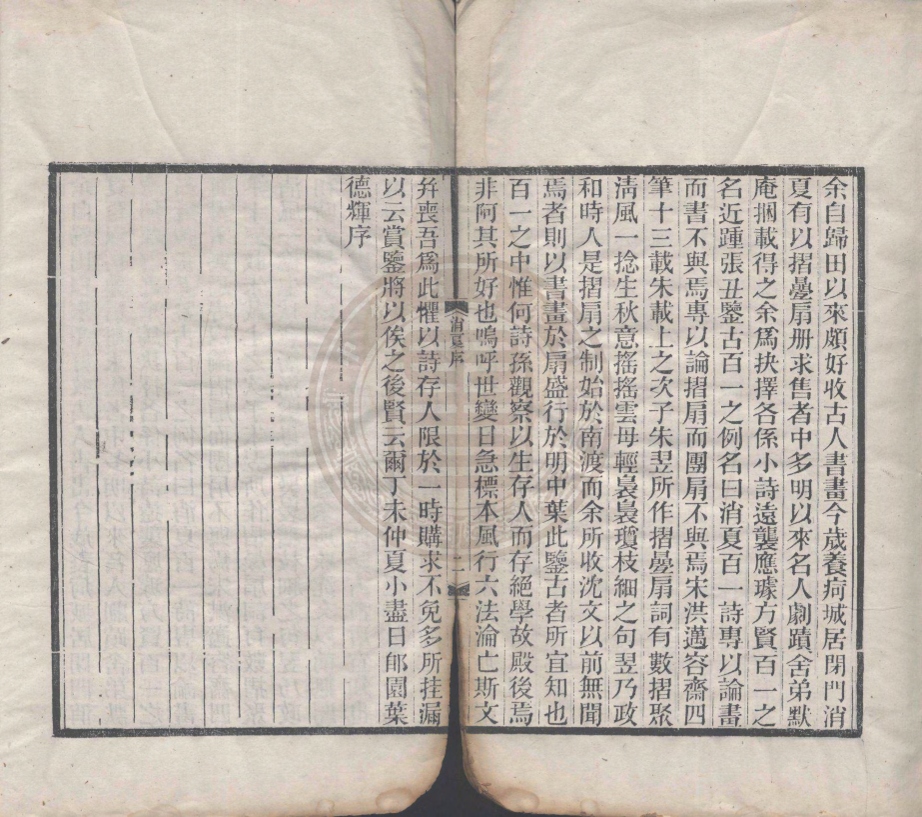 余自歸田以來頗好收古人書畫今歲養疴城居閉門消
夏有以摺疊扇册求售者中多明以來名人劇蹟舍弟默
庵捆載得之余爲抉擇各係小詩遠襲應璩方賢百一之
名近踵張丑鑒古百一之例名曰消夏百一詩專以論畫
而書不與焉專以論摺扇而團扇不與焉宋洪邁容齋四
筆十三載朱載上之次子朱翌所作摺疊扇詞有數摺聚
淸風一捻生秋意搖搖雲母輕裊裊瓊枝細之句翌乃政
和時人是摺扇之制始於南渡而余所收沈文以前無聞
焉者則以書畫於扇盛行於明中葉此鑒古者所宜知也
百一之中惟何詩孫觀察以生存人而存絕學故殿後焉
非阿其所好也嗚呼世變日急標本風行六法淪亡斯文
幷喪吾爲此懼以詩存人限於一時購求不免多所挂漏
以云賞鑒將以俟之後賢云爾丁未仲夏小盡日郋園葉
德輝序
序
二